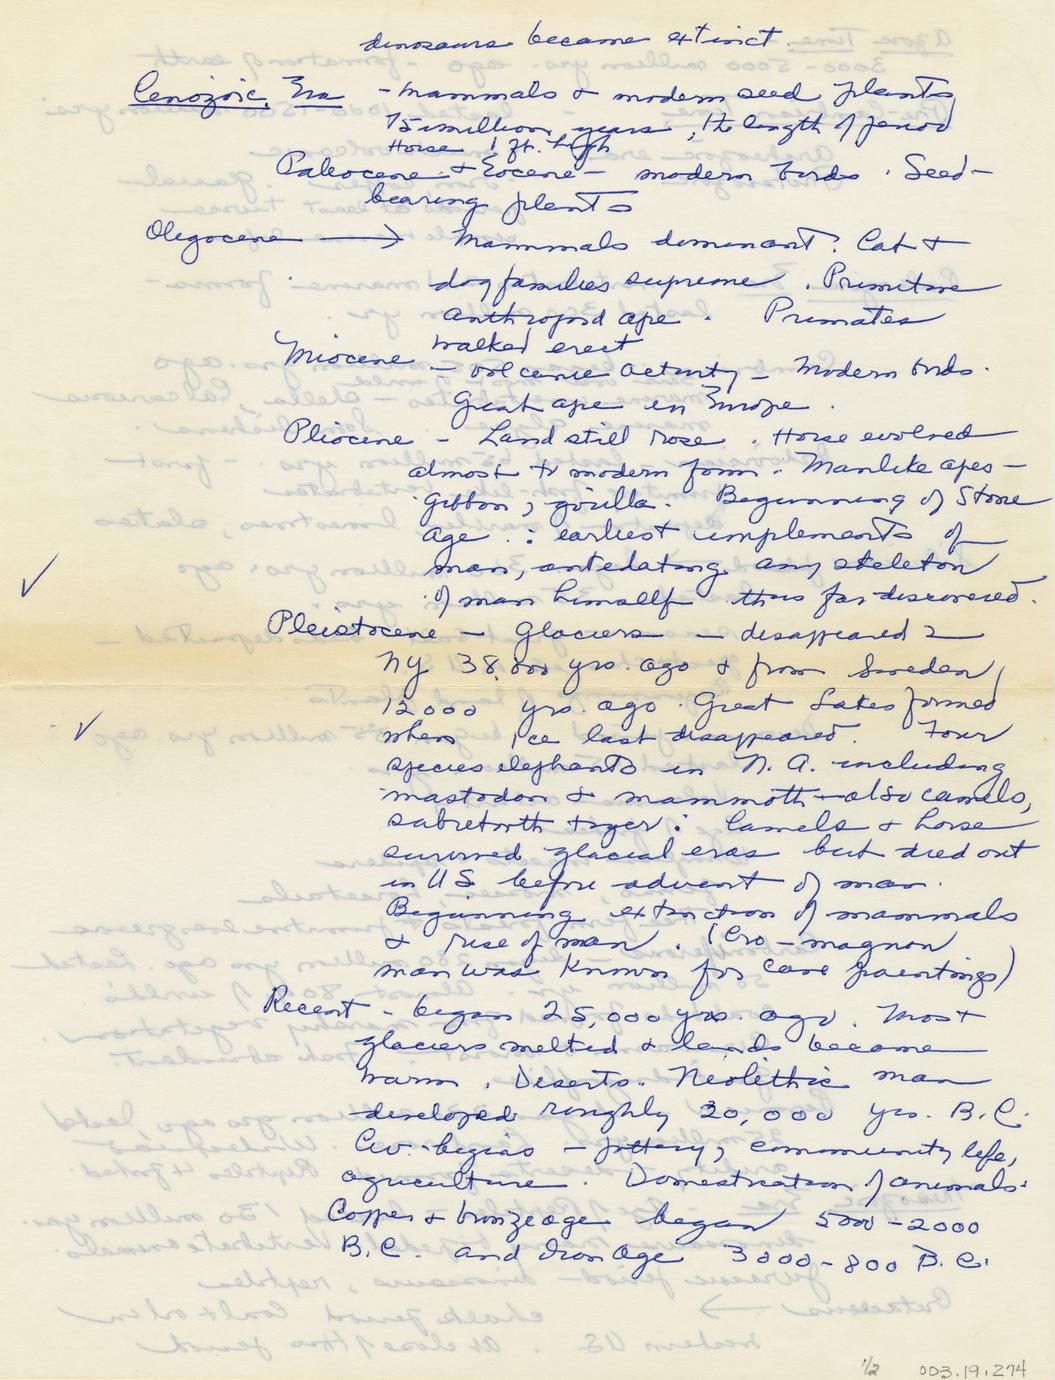 dinosaurs became extinct.
Cenozoic Era - Mammals & modern seed plants
75 million years, the length of period
Horse 1 ft. high
Paleocene & Eocene - modern birds. Seed-
bearing plants
Olegocene → Mammals dominant. Cat &
dog families supreme. Primitive
anthropoid ape. Primates
walked erect
Miocene - volcanic activity - Modern birds.
Great ape in Europe.
Pliocene - Land still rose. Horse evolved
almost to modern form. Manlike apes -
gibbon, gorilla. Beginning of Stone
age.: earliest implements of
man, antedating any skeleton
of man himself thus far discovered.
Pleistocene - Glaciers - disappeared in
NY 38,000 yrs. ago & from Sweden
12000 yrs. ago. Great Lakes formed
when ice last disappeared. Four
species elephants in N. A. including
mastodon & mammoth - also camels,
sabretooth tiger: Camels & horse
survived glacial eras but died out
in US before advent of man.
Beginning extinction of mammals
& rise of man. (Cro-magnon
man was known for cave paintings)
Recent - began 25,000 yrs. ago. Most
glaciers melted & lands became
warm. Deserts. Neolithic man
developed roughly 20,000 yrs. B.C.
Civ. begins - pottery, community life,
agriculture. Domestication of animals.
Copper & bronze age began 5000-2000
B.C. and Iron Age 3000-800 B.C.
1/2 003.19.274